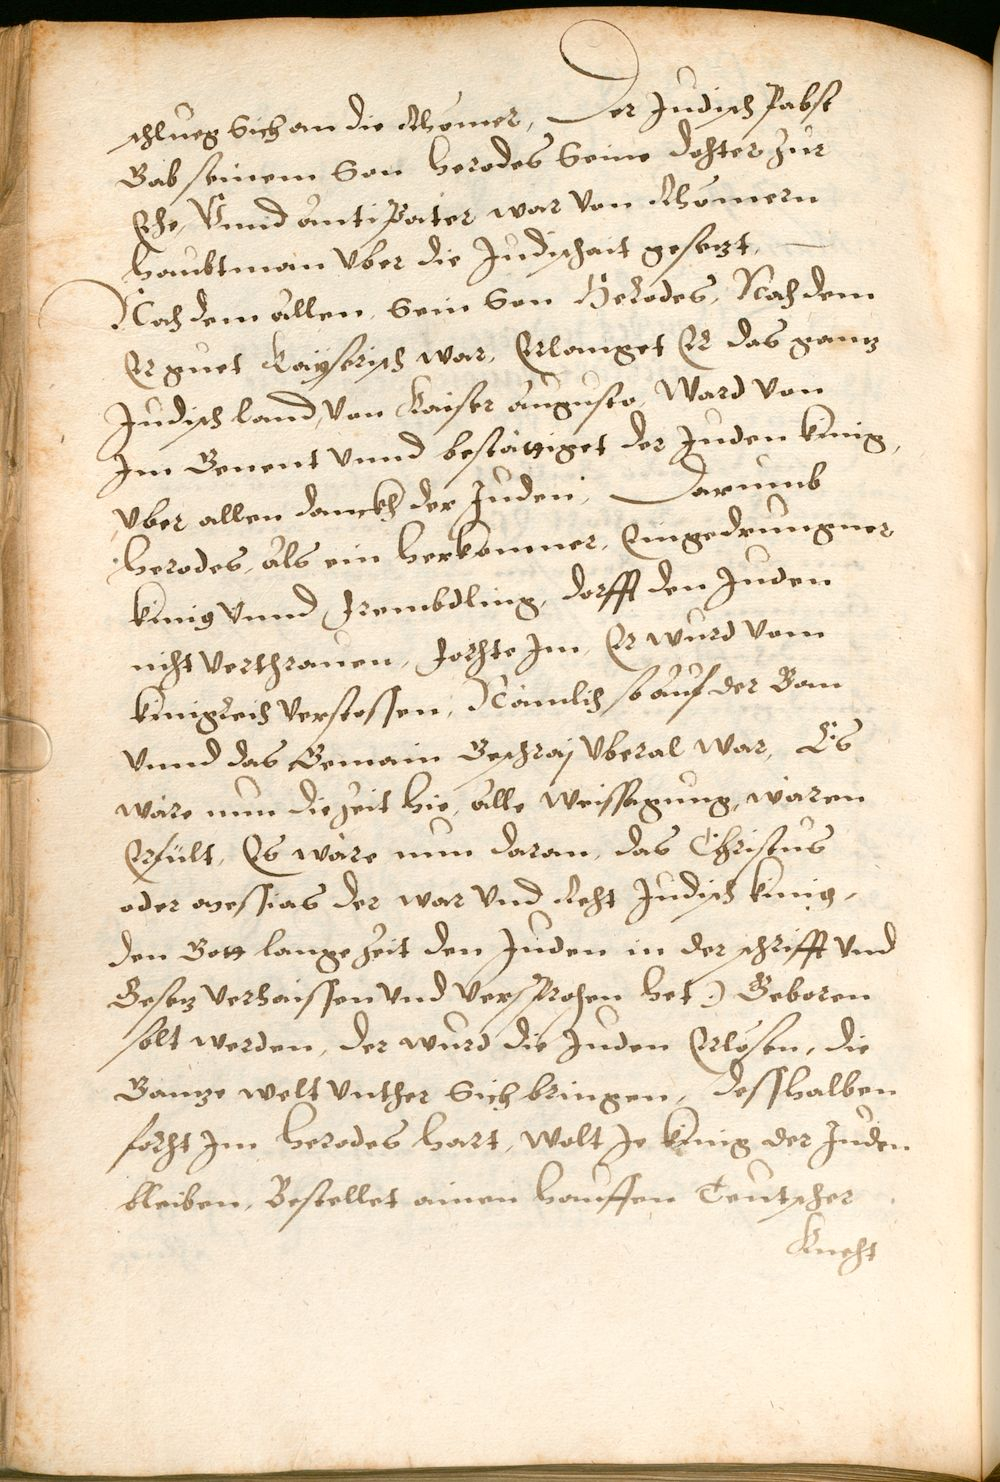 schlueg Sich an die Rhömer, Der Judisch Pabst
Gab seinem Son Herodes Seine dohter Zur
Ehe, Vnnd Antipater war von Rhömern
Haubtman Vber die Judischait gesetzt,
Nach dem allen, Sein Son Herodes, Nach dem
Er guet Kayserisch war, Erlanget Er das gantz
Judisch land, Von Kaiser Augusto, Ward von
Im Benent Vnnd bestättiget der Juden kinig,
Vber allen danckh der Juden, Darumb
Herodes, als ein herkommer, Eingedrungner
kinig Vnnd frembdling, dorfft den Juden
nicht Verthrauen, forhte Im, Er wurd vom
kinigreich Verstossen, Nämlich so auf der Ban
Vnnd das Gemain Geschraj Vberal war, Es
wäre nun die Zeit hie, alle Weissagung, wären
Erfült, Es wäre nun daran, das Christus
oder Messias der war Vnd Reht Judisch kinig,
den Gott lange Zeit den Juden in der schrifft Vnd
Gesetz Verhaissen Vnd Versprohen het) Geboren
solt werden, der wurd die Juden Erlösen, die
Gantze welt Vnther Sich bringen, desshalben
forht Im Herodes hart, wolt Je kinig der Juden
bleiben, Bestellet ainen hauffen Teutscher
Kneht